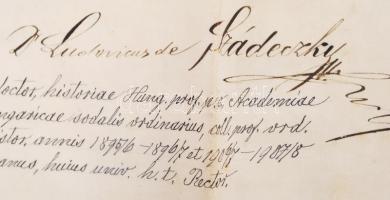 Dr Ludovicus de Szádeczky
doctor, historiae Hung. prof. p. o. Academiae
ngaricae sodalis ordinarius, coll. prof. ord.
istor. annis 1895/6 - 1896/7 et 1906/7 - 1907/8
anus, huius univ. h. t. Rector.